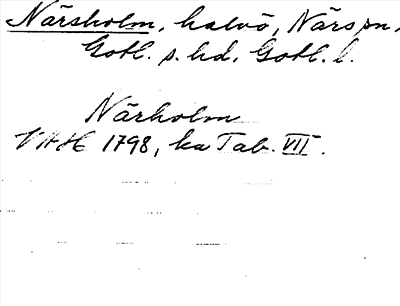 Närsholm, halvö, Närs pn,
Gotl. s. hd, Gotl. l.
Närholm
VAH 1798, ka Tab. VII.